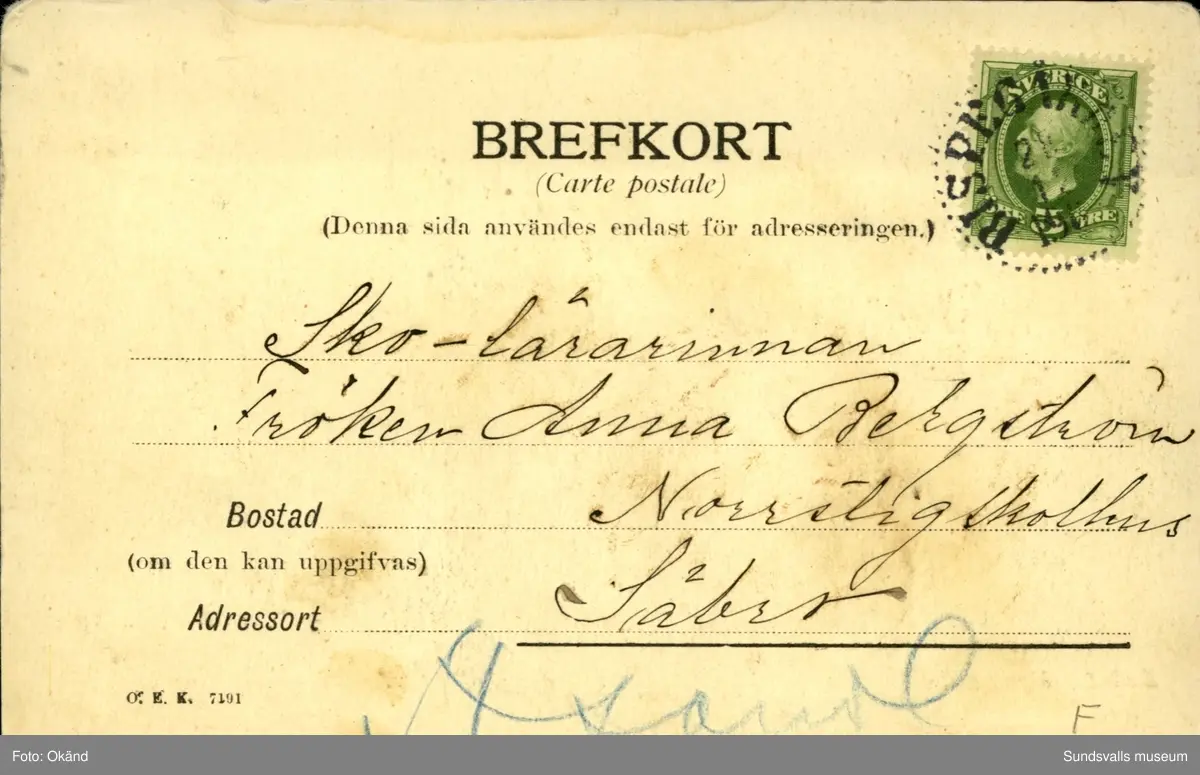 BREFKORT
(Carte postale)
(Denna sida användes endast för adresseringen.)
SVERICE
ÖRE
BISPGÅRDEN
Sko-lärarinnan
Fröken Anna Bergström
Bostad Norrstigskolhus
(om den kan uppgifvas)
Adressort Säbrå
O. E. K. 7191
F
Foto: Okänd
Sundsvalls museum